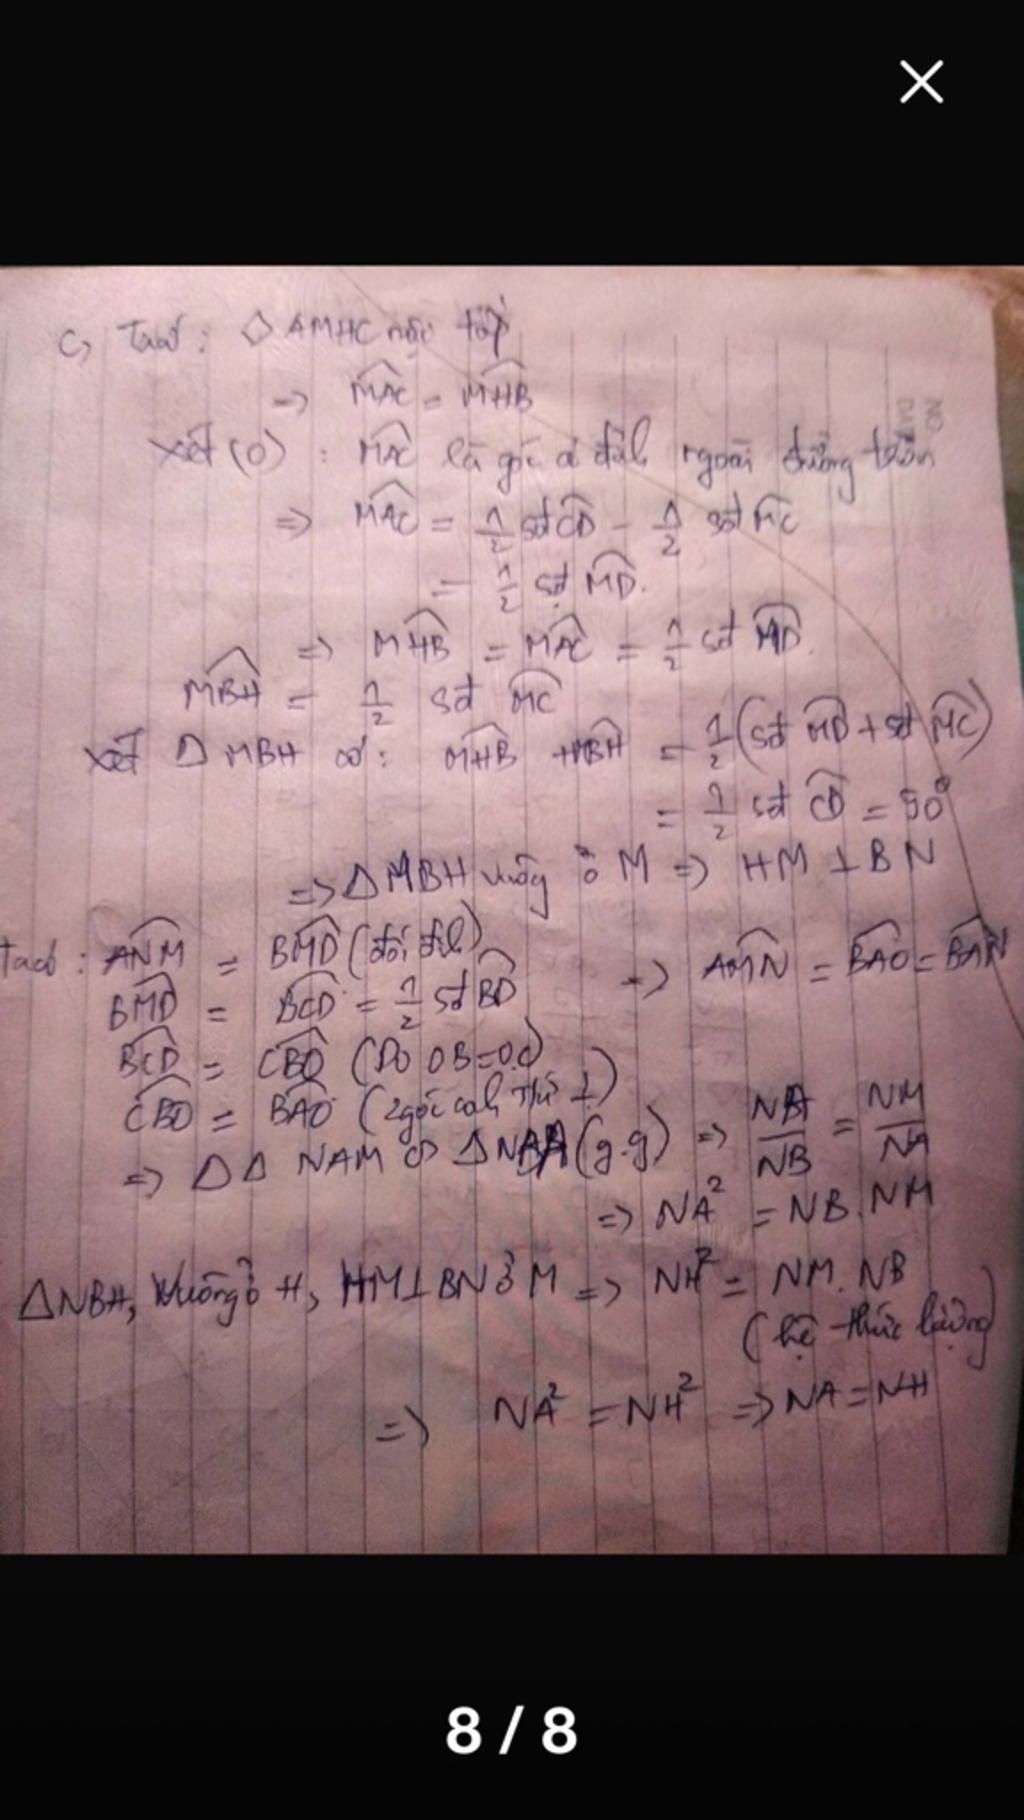 c, Ta có: ◇ AMHC nội tiếp
=> \widehat{MAC} = \widehat{MHB}
Xét (O): \widehat{MAC} là góc ở đỉnh ngoài đường tròn
=> \widehat{MAC} = 1/2 sđ \widehat{CD} - 1/2 sđ \widehat{MC}
= 1/2 sđ \widehat{MD}.
=> \widehat{MHB} = \widehat{MAC} = 1/2 sđ \widehat{MD}.
\widehat{MBH} = 1/2 sđ \widehat{MC}
Xét Δ MBH có: \widehat{MHB} + \widehat{MBH} = 1/2 (sđ \widehat{MD} + sđ \widehat{MC})
= 1/2 sđ \widehat{CD} = 90°
=> Δ MBH vuông ở M => HM ⊥ BN
Ta có: \widehat{ANM} = \widehat{BMD} (đối đỉnh)
=> \widehat{AMN} = \widehat{BAO} = \widehat{BAN}
\widehat{BMD} = \widehat{BCD} = 1/2 sđ \widehat{BD}
\widehat{BCD} = \widehat{CBO} (Do OB=OC)
\widehat{CBO} = \widehat{BAO} (2 góc ⊥)
=> Δ Δ NAM ∽ Δ NBA (g.g) => NA/NB = NM/NA
=> NA² = NB.NM
ΔNBH, vuông ở H, HM⊥BN ở M => NH² = NM.NB
(hệ thức lượng)
=> NA² = NH² => NA = NH
8 / 8